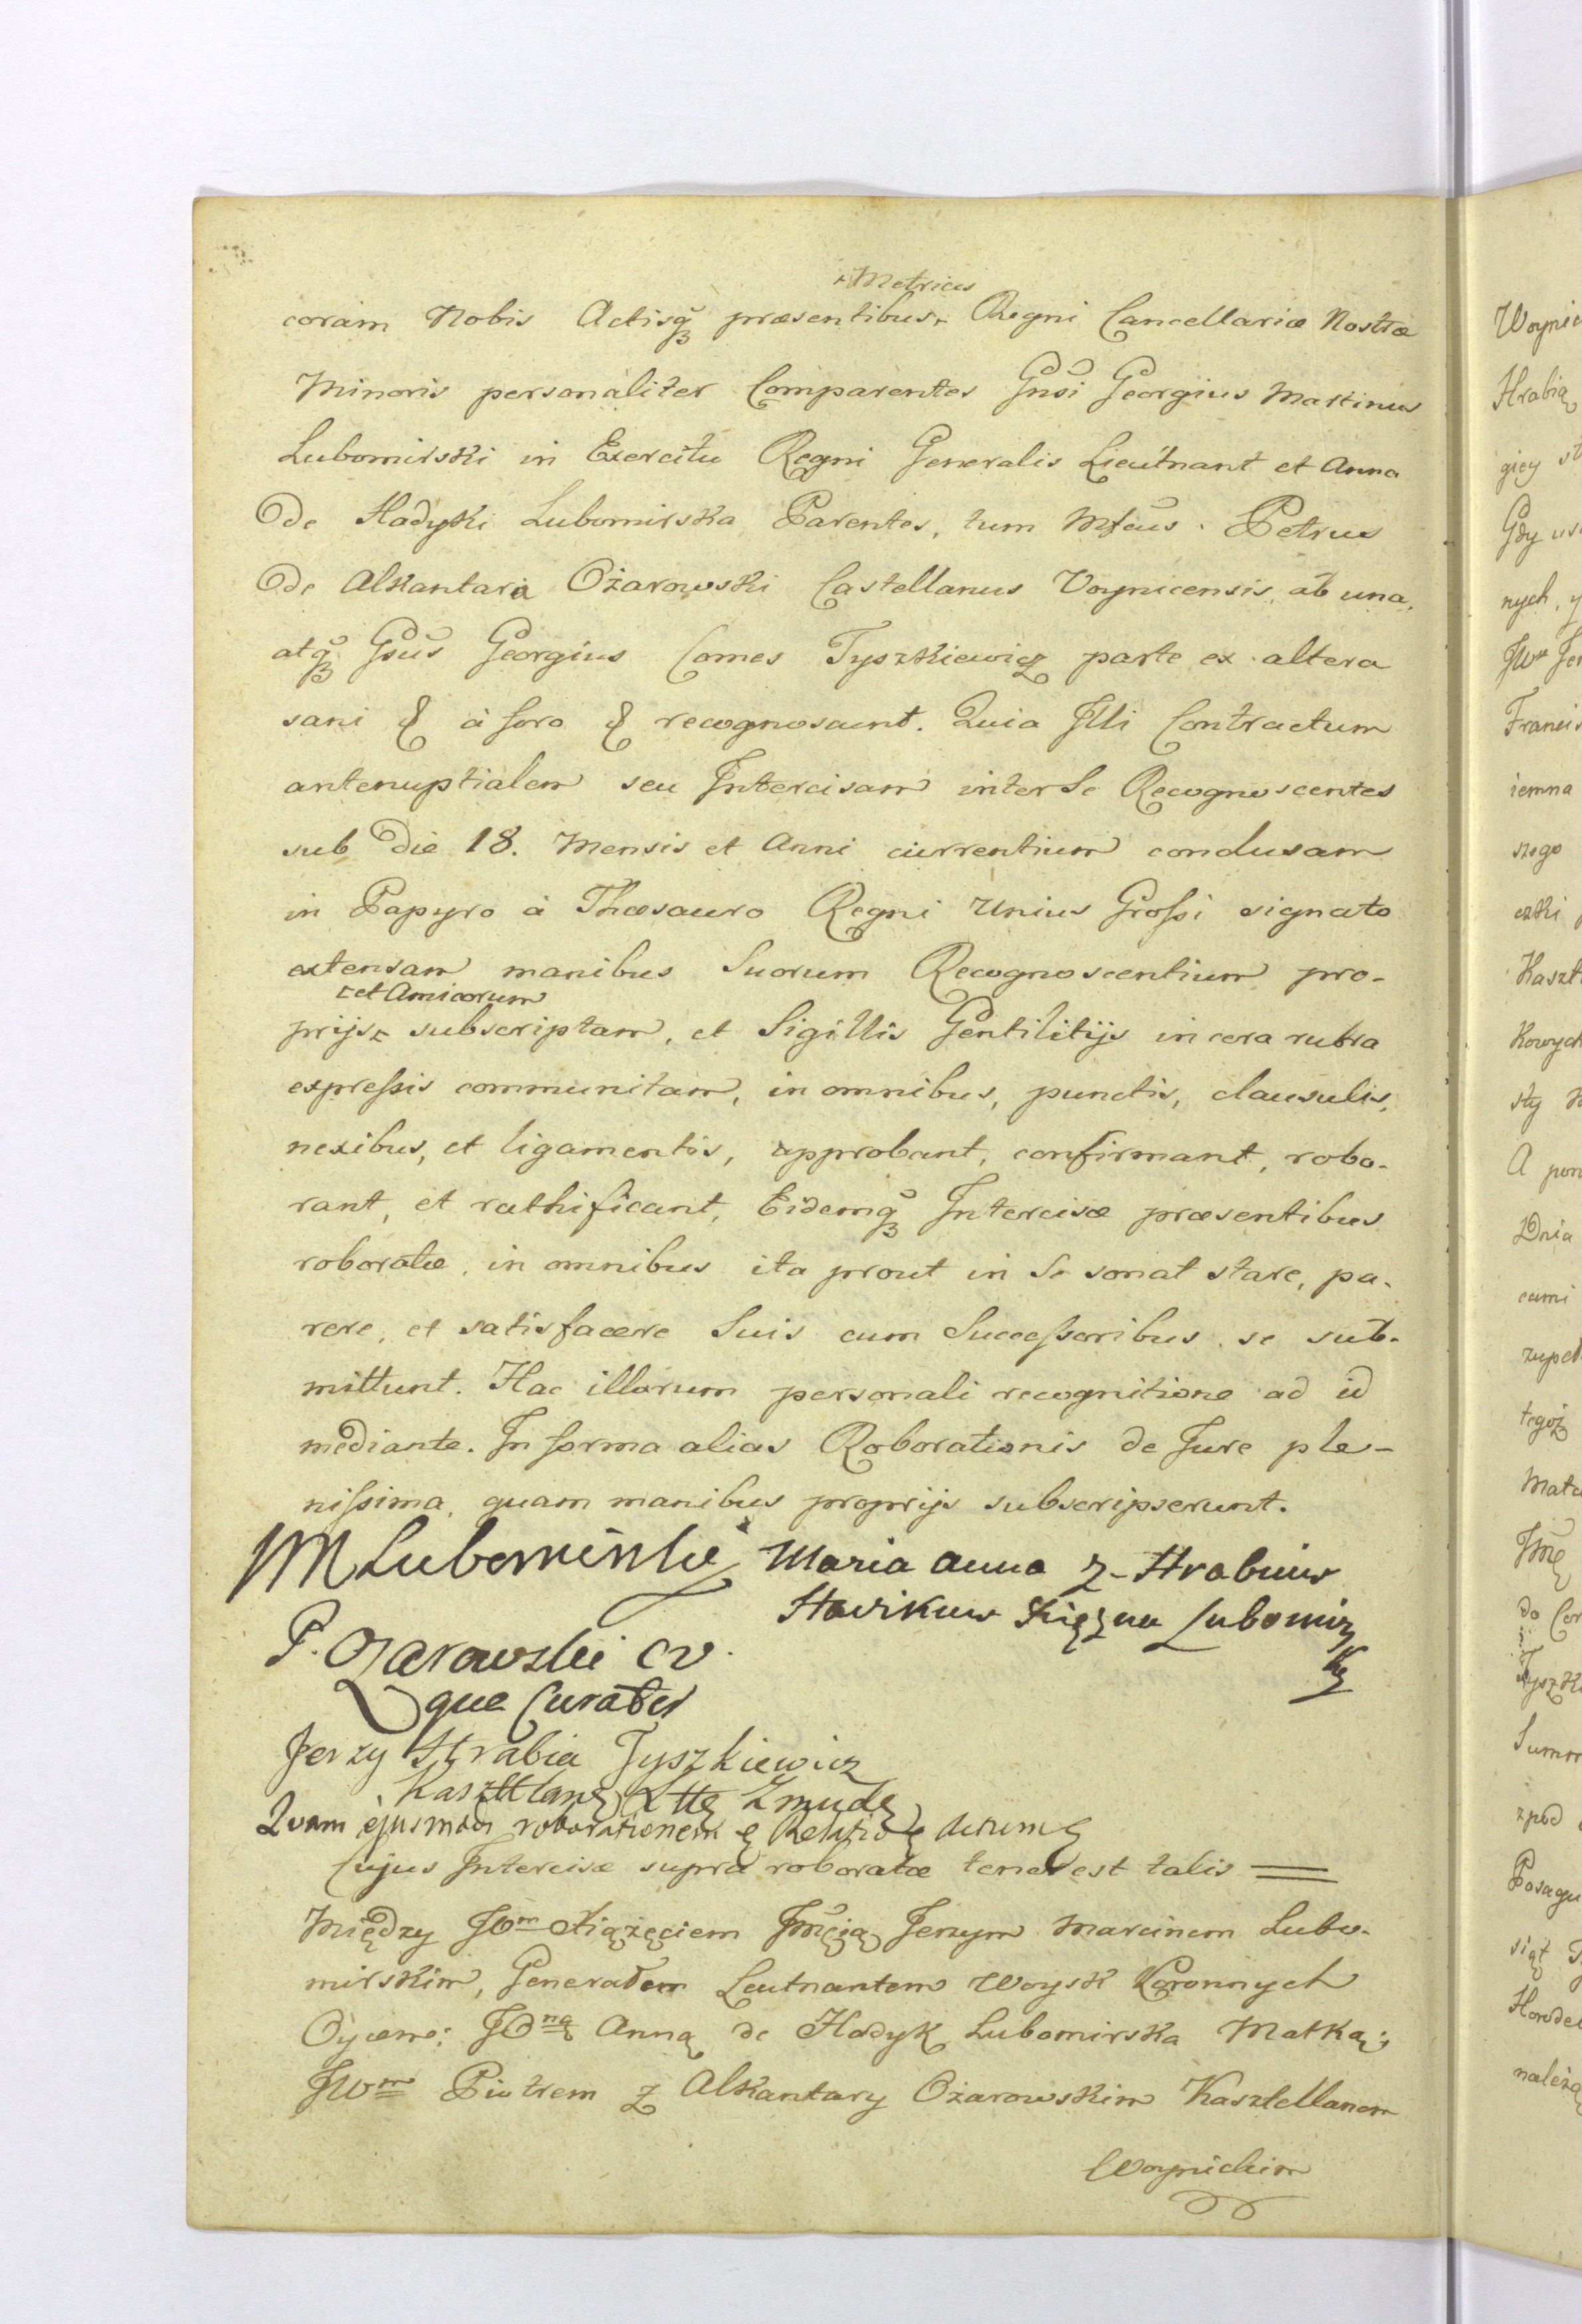 + Metrices
coram Nobis Actisq₃ præsentibus + Regni Cancellariæ Nostræ
Minoris personaliter Comparentes Gnsi Georgius Martinus
Lubomirski in Exercitu Regni Generalis Lieutnant et Anna
de Hadyki Lubomirska Parentes, tum Mfcus. Petrus
de Alkantara Ożarowski Castellanus Voynicensis ab una,
atq₃ Gsus Georgius Comes Tyszkiewicz parte ex altera
sani & à foro & recognoscunt. Quia Illi Contractum
antenuptialem seu Intercisam inter Se Recognoscentes
sub die 18. Mensis et Anni currentium conclusam
in Papyro à Thæsauro Regni Unius Grossi signato
extensam manibus Suorum Recognoscentium pro-
et Amicorum
prijs subscriptam, et Sigillis Gentilitijs in cera rubra
expressis communitam, in omnibus, punctis, clausulis,
nexibus, et ligamentis, approbant, confirmant, robo-
rant, et rathificant, Eidemq₃ Intercisæ præsentibus
roboratæ, in omnibus ita prout in Se sonat stare, pa-
rere, et satisfacere Suis cum Successoribus se sub-
mittunt. Hac illorum personali recognitione ad id
mediante. In forma alias Roborationis de Jure ple-
nissima, quam manibus proprijs subscripserunt.
M Lubomirski Maria anna z Hrabiuw
Hadikuw Xiężna Lubomirz
ka
P. Ożarowski CV.
qua Curator
Jerzy Hrabia Tyszkiewicz
Kasztlanę Xttę Zmudz
Quam ejusmodi roborationem & Relatio & Actum &
Cujus Intercisæ supra roboratæ tenor est talis =
Między JOm Xiążęciem Jmcią Jerzym Marcinem Lubo-
mirskim, Generałem Leutnantem Woysk Koronnych
Oycem: JOną Anną de Hadyk Lubomirska Matką;
JWm Piotrem z Alkantary Ożarowskim Kasztellanem
Woynickim
Woynic
Hrabią
giey
Gdy
nych, y
JWm
Francis
iemna
szego
Kaszt
kowych
sty
A
Dnia
cami
zupeł
tegoż
Mat
do
Tyszki
Summ
zpod
Posagu
siąt
Horode
należą